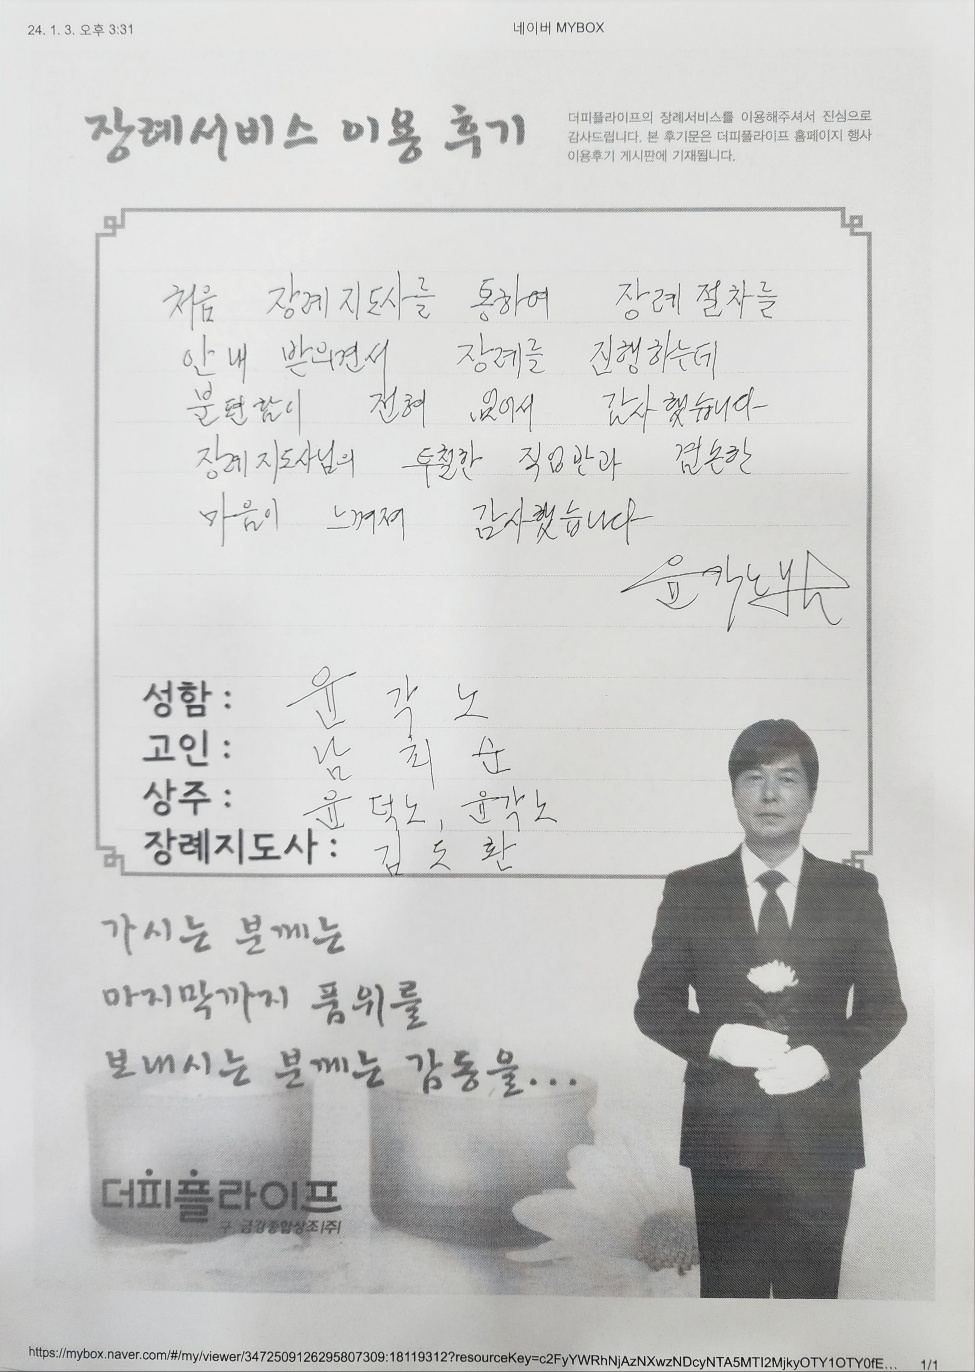 24. 1. 3. 오후 3:31
네이버 MYBOX
장례서비스 이용 후기
더피플라이프의 장례서비스를 이용해주셔서 진심으로
감사드립니다. 본 후기문은 더피플라이프 홈페이지 행사
이용후기 게시판에 기재됩니다.
처음 장례지도사를 통하여 장례절차를
안내 받으면서 장례를 진행하는데
불편함이 전혀 없어서 감사했습니다
장례지도사님의 투철한 직업반과 겸손한
마음이 느껴져 감사했습니다
윤각노
성함 : 윤각노
고인 : 남희순
상주 : 윤덕노, 윤각노
장례지도사 : 김도환
가시는 분께는
마지막까지 품위를
보내시는 분께는 감동을...
더피플라이프
구. 금강종합상조(주)
https://mybox.naver.com/#/my/viewer/3472509126295807309:18119312?resourceKey=c2FyYWRhNjAzNXwzNDcyNTA5MTI2MjkyOTY1OTY0fE... 1/1